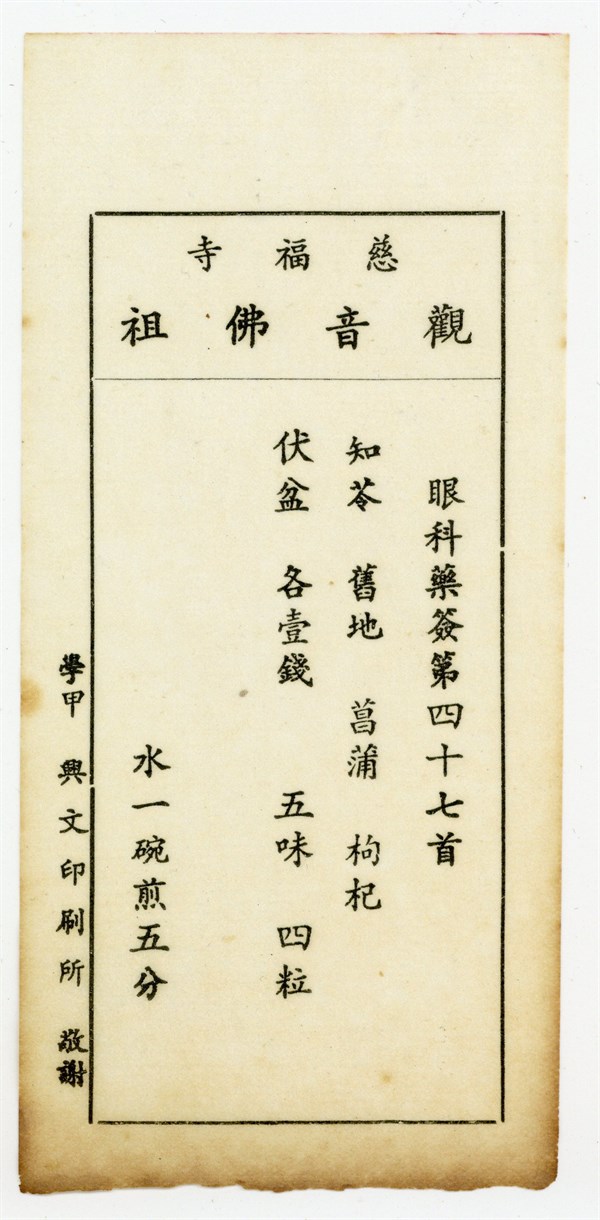 慈福寺
觀音佛祖
眼科藥簽第四十七首
知苓 舊地 菖蒲 枸杞
伏盆 各壹錢 五味 四粒
水一碗煎五分
學甲 興文印刷所 敬謝